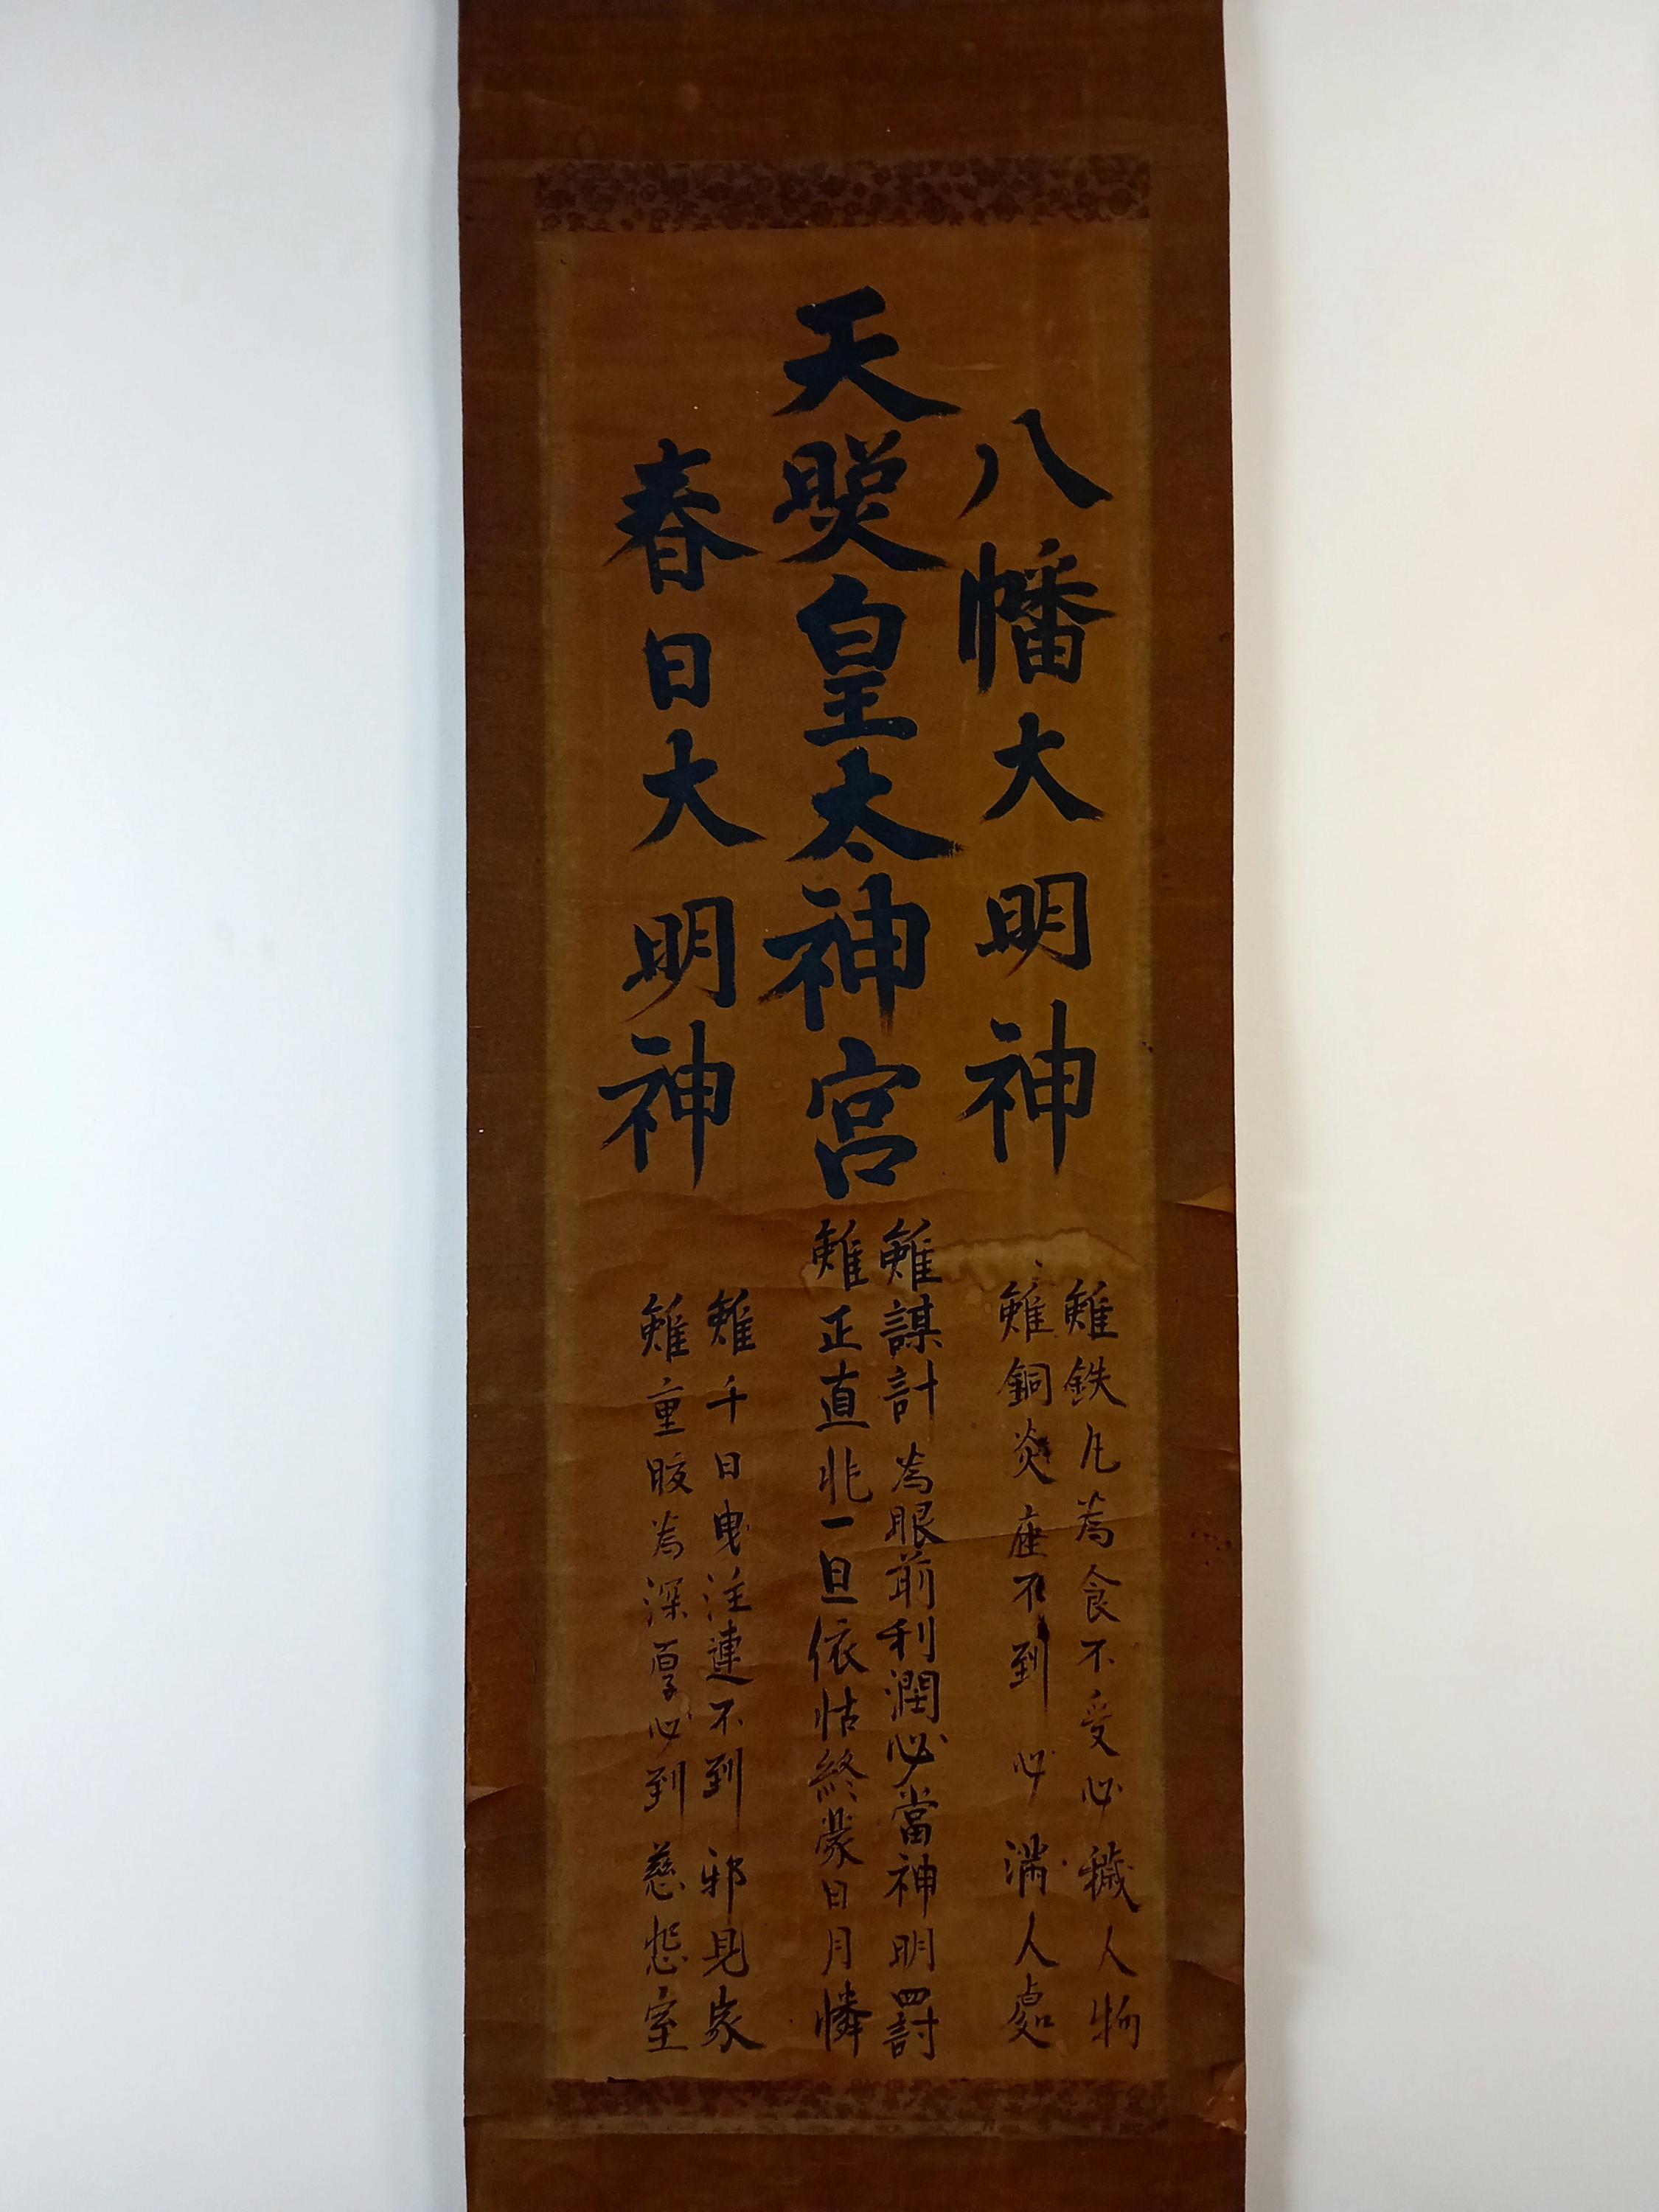 八幡大明神
雖鉄丸為食不受心穢人物
雖銅炎座不到心濁人處
天照皇太神宮
雖謀計為眼前利潤必當神明罰
雖正直非一旦依怙終蒙日月憐
春日大明神
雖千日曳注連不到邪見家
雖重服為深厚必到慈悲室